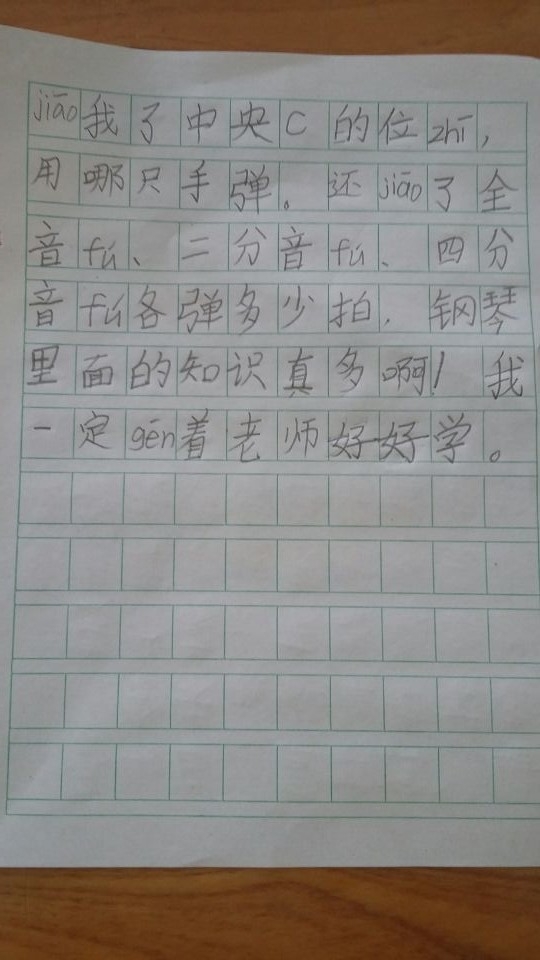 jiāo我了中央C的位zhī，
用哪只手弹。还jiāo了全
音fú、二分音fú、四分
音fú各弹多少拍，钢琴
里面的知识真多啊！我
一定gēn着老师好好学。